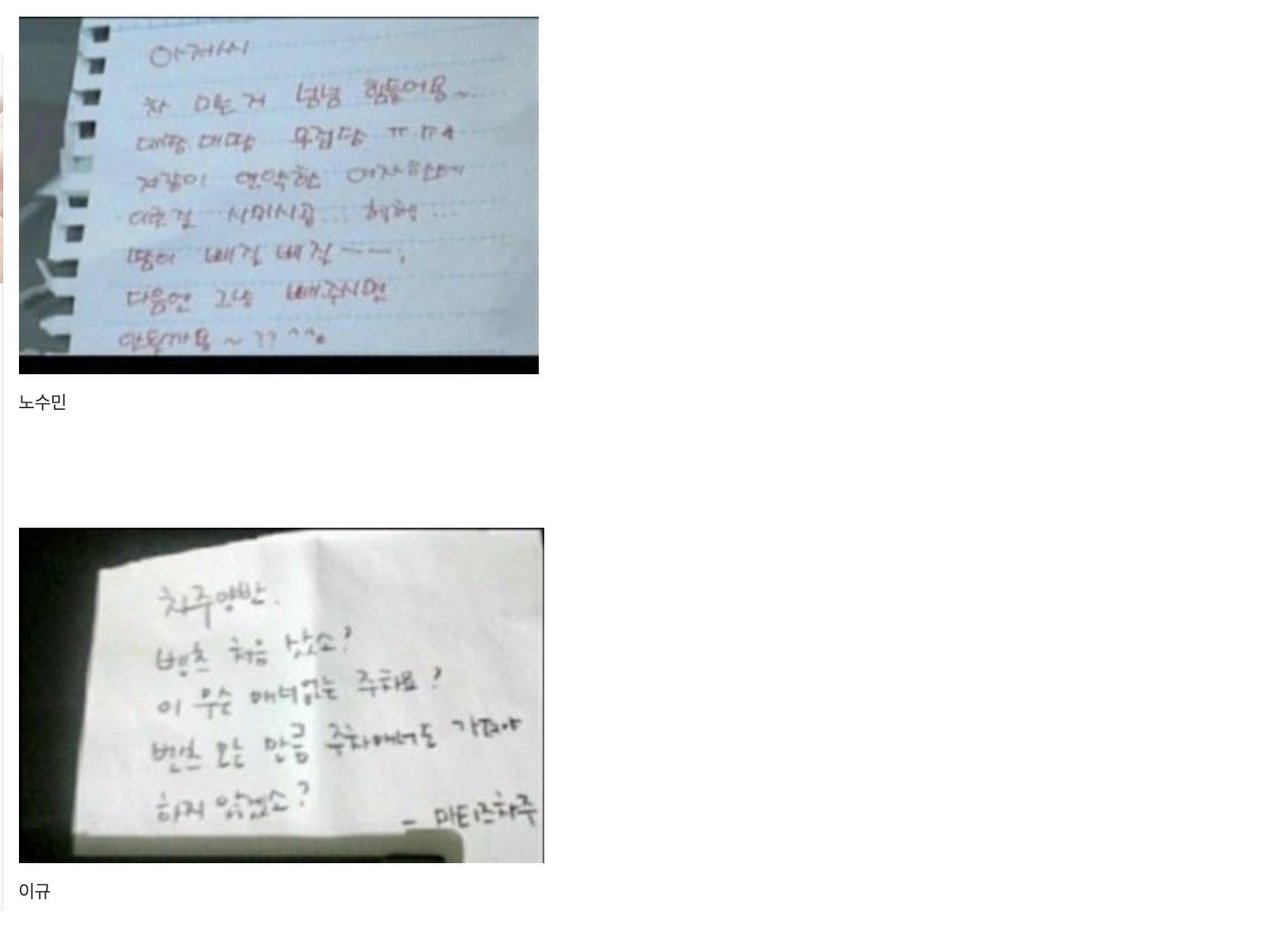 아저씨
차 미는거 넘넘 힘들어용~
대땅대땅 무겁당 ㅠㅠ
저같이 연약한 여자한테
이런걸 시미시공... 헥헥...
땀이 삐질 삐질ㅡㅡ;
다음엔 그냥 빼주시면
안될까용~?? ^^
노수민
차주양반.
벤츠 처음 샀소?
이 무슨 매너없는 주차요?
벤츠 모는 만큼 주차매너도 가져야
하지 않겠소?
- 마티즈차주
이규